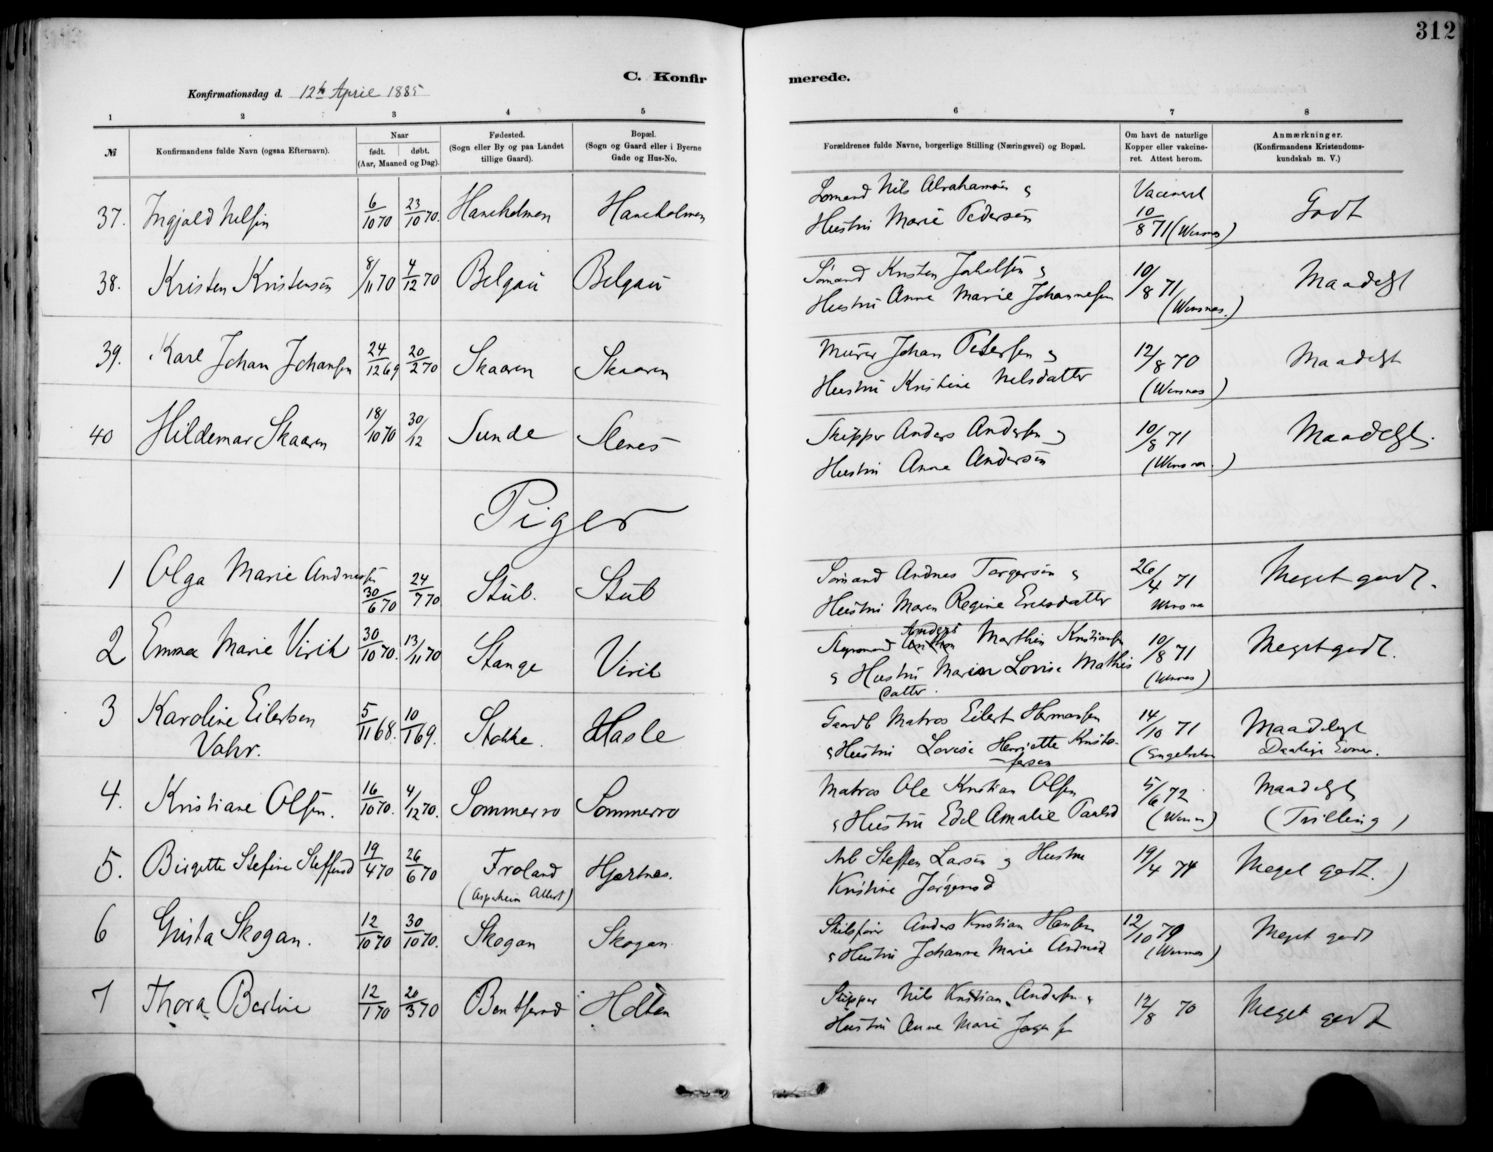 312
C. Konfirmerede.
Konfirmationsdag d. 12te April 1885
1 2 3 4 5 6 7 8
№
Konfirmandens fulde Navn (ogsaa Efternavn).
Naar
født. døbt.
(Aar, Maaned og Dag).
Fødested.
(Sogn eller By og paa Landet
tillige Gaard).
Bopæl.
(Sogn og Gaard eller i Byerne
Gade og Hus-No.
Forældrenes fulde Navne, borgerlige Stilling (Næringsvei) og Bopæl.
Om havt de naturlige
Kopper eller vakcine-
ret. Attest herom.
Anmærkninger.
(Konfirmandens Kristendoms-
kundskab m. V.)
37. Ingjald Nilsen 6/10 70 23/10 70. Haneholmen Haneholmen
Sømand Nils Abrahamsen &
Hustru Marie Pedersen
Vaccineret
10/8 71 (Wensnes)
Godt
38. Kristen Kristensen 8/11 70 4/12 70 Belgau Belgau
Sømand Kristen Jakelsen &
Hustru Anne Marie Johannesen
10/8 71
(Wensnes.)
Maadelgt
39. Karl Johan Johansen 24/12 69 20/2 70 Skaaren Skaaren
Murer Johan Petersen &
Hustru Kristine Nilsdatter
12/8 70
(Wensnes)
Maadelgt
40 Hildemar Skaaren 18/10 70 30/12 Sunde Stenes
Skipper Anders Andersen &
Hustru Anne Andersen
10/8 71
Maadelgt.
Piger
1 Olga Marie Andreasen 30/6 70 24/7 70 Stub. Stub
Sømand Andreas Torgersen &
Hustru Maren Regine Erlsdatter
26/4 71
Meget godt.
2 Emma Marie Virik 30/10 70. 13/11 70 Stange Virik
Anders
Marthin Kristiansen
& Hustru Maren Lovise Mathis
datter.
10/8 71
(Wensnes)
Meget godt.
3 Karoline Eilertsen 5/11 68. 10/1 69. Stokke. Hasle
Vahr.
Gaardb Matros Eilert Hermansen
& Hustru Lovise Henriette Kristo-
fersen
14/10 71
(Engelsten
Maadelgt
Daarlige Evner.
4. Kristiane Olsen. 16/10 70. 4/12 70. Sommerro Sommerro
Matros Ole Kristian Olsen
& Hustru Edel Amalie Paulsd
5/6 72
Maadelgt
(Tvilling)
5. Birgitte Stefine Steffensd 19/4 70 26/6 70 Froland Hjertnes.
Arb Steffen Larsen & Hustru
Kristine Jørgensd
19/4 74
Meget godt.)
6 Gusta Skogan. 12/10 70 30/10 70. Skogan Skogan
Anders Kristian Hansen
& Hustru Johanne Marie Andersd
12/10 70
(Wensnes)
Meget godt
7 Thora Bertine 12/1 70 20/3 70 Bentserød Holtan
Skipper Nils Kristian Andersen &
Hustru Anne Marie
12/8 70
Meget godt